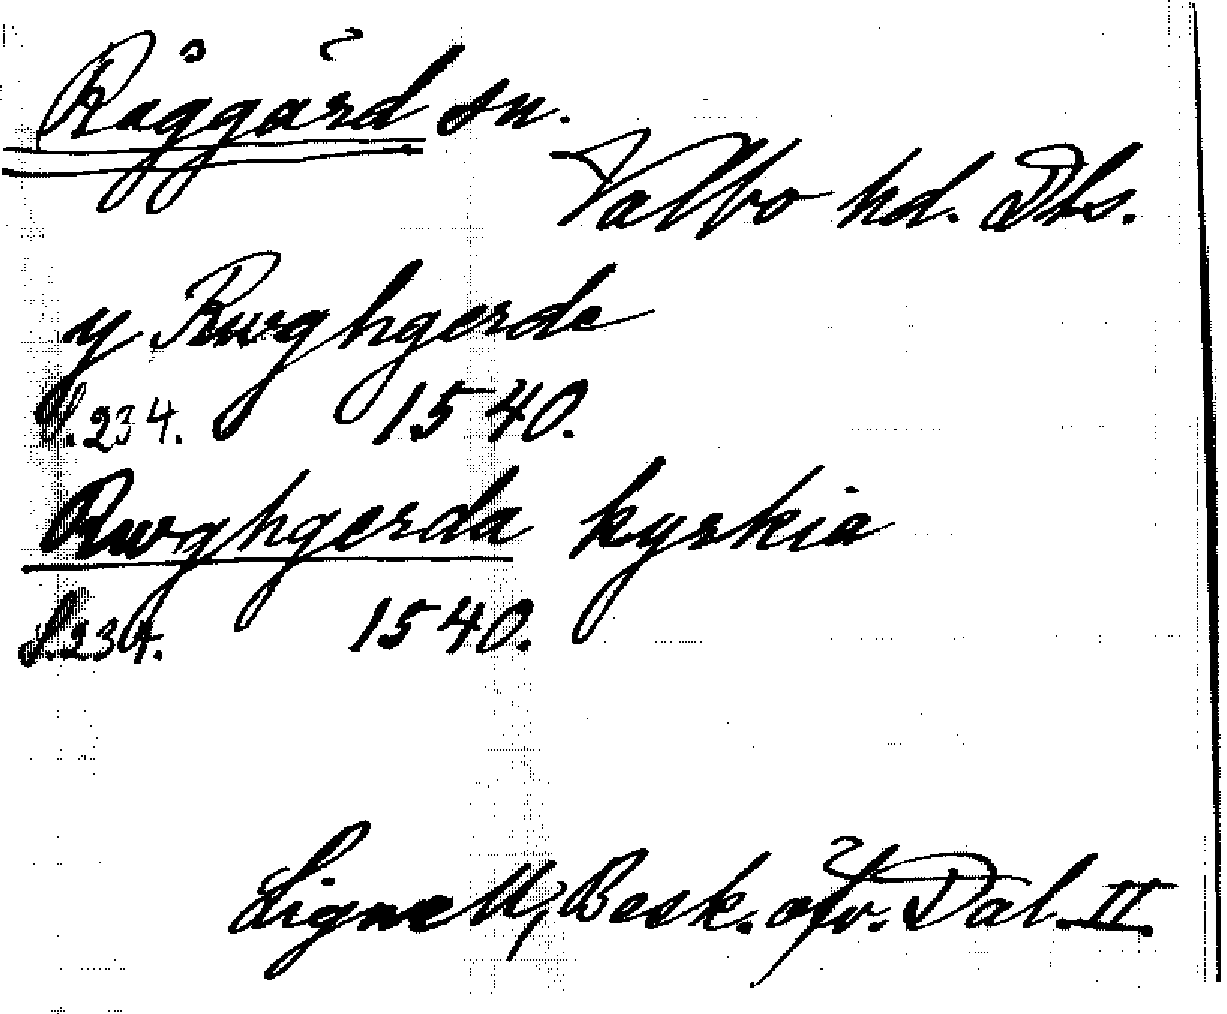 Råggärd sn.
Valbo hd. Dls.
y Rwghgerde
S. 234. 1540.
Rwghgerda kyrkia
S. 234. 1540.
Lignell, Besk. öfv. Dal. II.